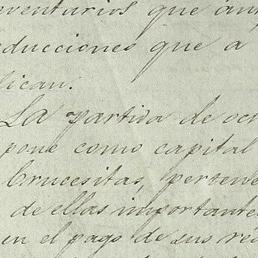 inventarios que an
educciones que a
lican.
La partida de oc
pone como capital
Crucesitas, pertene
de ellas importante
en el pago de sus re